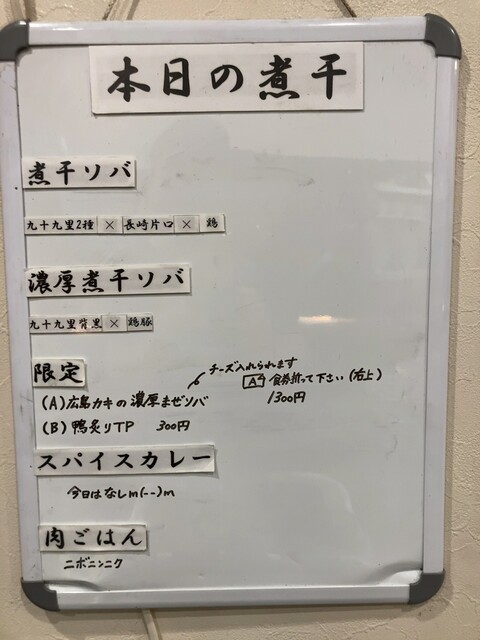 本日の煮干
煮干ソバ
九十九里2種 × 長崎片口 × 鶏
濃厚煮干ソバ
九十九里背黒 × 鶏豚
限定
チーズ入れられます
A4 食券折って下さい(右上)
(A) 広島カキの濃厚まぜソバ 1300円
(B) 鴨炙りTP 300円
スパイスカレー
今日はなしm(--)m
肉ごはん
ニボニンニク